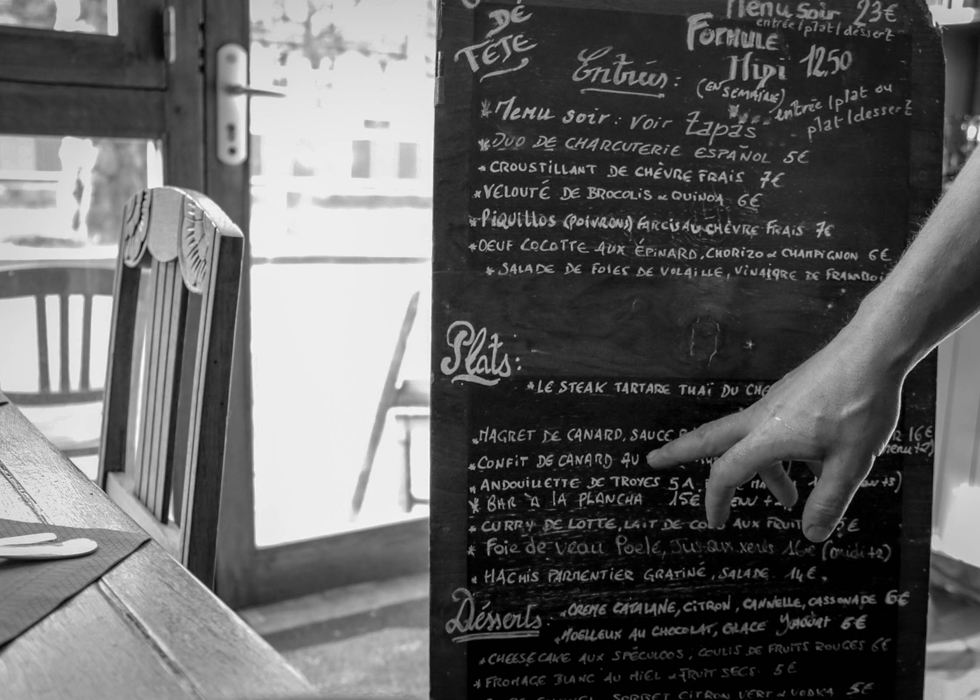 DE
TÊTE
Menu Soir 23€
entrée/plat/dessert
FORMULE
Midi 12.50
(EN SEMAINE)
entrée/plat ou
plat/dessert
Entrées:
* Menu soir: voir Tapas
* DUO DE CHARCUTERIE ESPAÑOL 5€
* CROUSTILLANT DE CHÈVRE FRAIS 7€
* VELOUTÉ DE BROCOLIS & QUINOA 6€
* PIQUILLOS (POIVRONS) FARCIS AU CHÈVRE FRAIS 7€
* OEUF COCOTTE AUX ÉPINARD, CHORIZO & CHAMPIGNON 6€
* SALADE DE FOIES DE VOLAILLE, VINAIGRE DE FRAMBOI
Plats:
* LE STEAK TARTARE THAÏ DU CHE
* MAGRET DE CANARD, SAUCE 16€
* CONFIT DE CANARD AU
* ANDOUILLETTE DE TROYES 5A
* BAR À LA PLANCHA 15€
* CURRY DE LOTTE, LAIT DE COCO AUX FRUIT
* Foie de veau Poêlé, Jus aux xeres 16€ (midi+2)
* HACHIS PARMENTIER GRATINÉ, SALADE. 14€.
Désserts:
* CREME CATALANE, CITRON, CANNELLE, CASSONADE 6€
* MOELLEUX AU CHOCOLAT, GLACE Yaourt 6€
* CHEESECAKE AUX SPÉCULOOS, COULIS DE FRUITS ROUGES 6€
* FROMAGE BLANC AU MIEL & FRUIT SECS. 5€
SORBET CITRON VERT & VODKA 5€